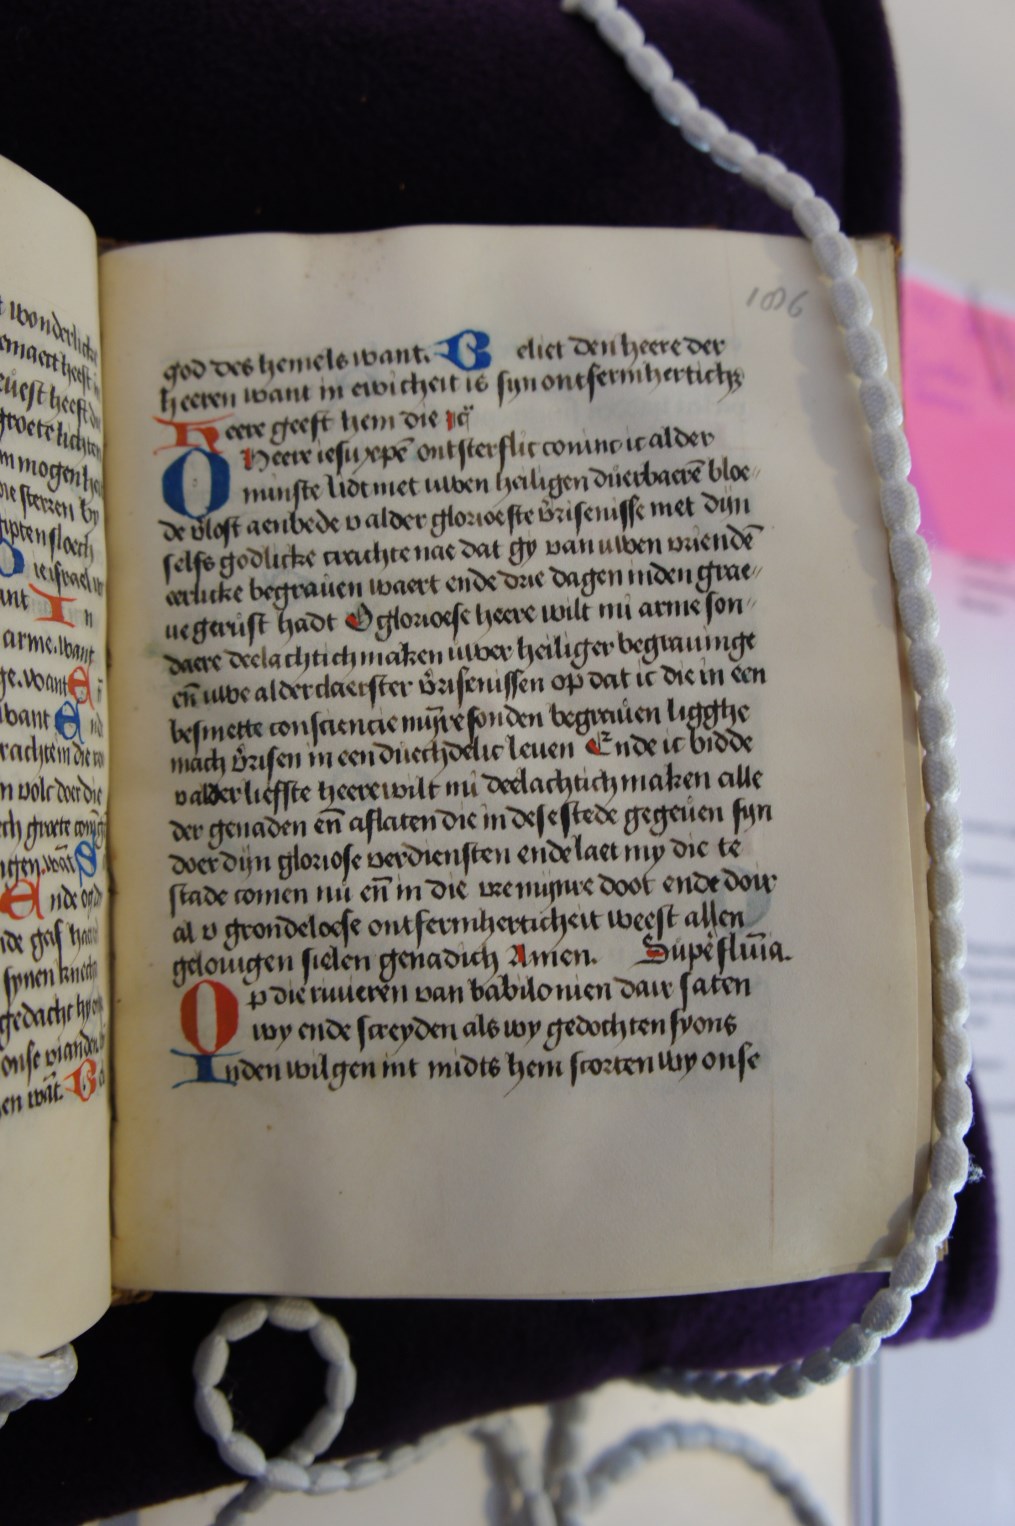 t wonderlicke
emaect heeft
evest heeft
groete lichten
m mogenhe
die sterren by
ipten sloech
ie israel
ant In
arme. want
ge. want En
want End
crachtem die
n volc doer die
ch groete
ngen. wāt S
Ende
nde gaf
synen knecht
gedacht hy
onse vianden
en wāt. G
106
god des hemels want. Geliet den heere der
heeren want in ewicheit is syn ontfermherticheyt
Heere geeft hem die
O Heere iesu xpē ontsterflic coninc ic alder
minste lidt met uwen heiligen duerbaerē bloe〃
de vlost aenbede v alder glorioeste v̄risenisse met dijn
selfs godlicke crachte nae dat gy van uwen vriendē
eerlicke begrauen waert ende drie dagen inden grae〃
ue gerust hadt O glorioese heere wilt mi arme son〃
daere deelachtich maken uwer heiliger begrauinge
eñ uwe alder claerster v̄risenissen op dat ic die in een
besmette consciencie mijre sonden begrauen ligghe
mach v̄risen in een duechdelic leuen Ende ic bidde
v alder liefste heere wilt mi deelachtich maken alle
der genaden eñ aflaten die in dese stede gegeuen syn
doer dijn gloriose verdiensten ende laet my die te
stade comen nu eñ in die vre mijnre doot ende doir
al v grondeloese ontfermherticheit weest allen
gelouigen sielen genadich Amen. Supē flum̄a.
Op die riuieren van babilonien dair saten
wy ende screyden als wy gedochten syons
Inden wilgen int midts hem scorten wy onse